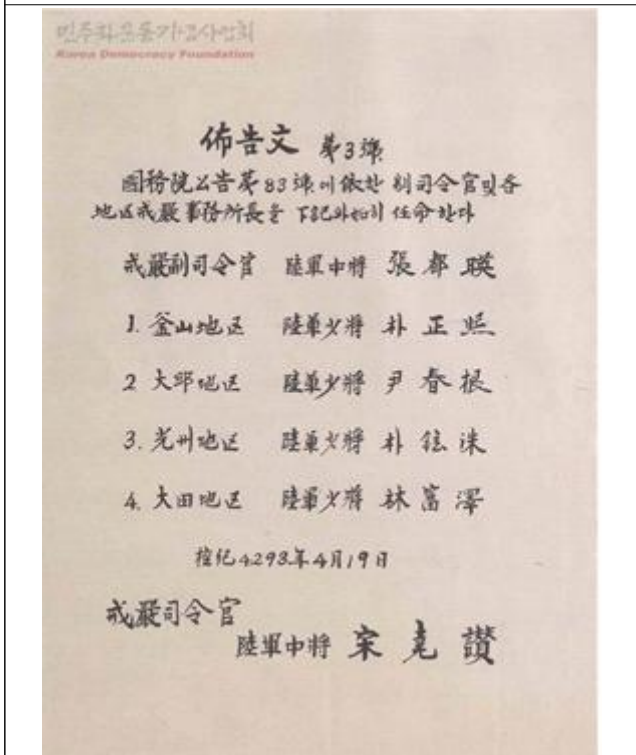 민주화운동기념사업회
Korea Democracy Foundation
佈告文 第3號
國務院公告第83號에依한 副司令官및各
地区戒嚴事務所長을 下記와如히 任命한다
戒嚴副司令官 陸軍中將 張都暎
1. 釜山地区 陸軍少將 朴正熙
2 大邱地区 陸軍少將 尹春根
3. 光州地区 陸軍少將 朴鉉洙
4. 大田地区 陸軍少將 林富澤
檀紀4293年4月19日
戒嚴司令官
陸軍中將 宋尭讃